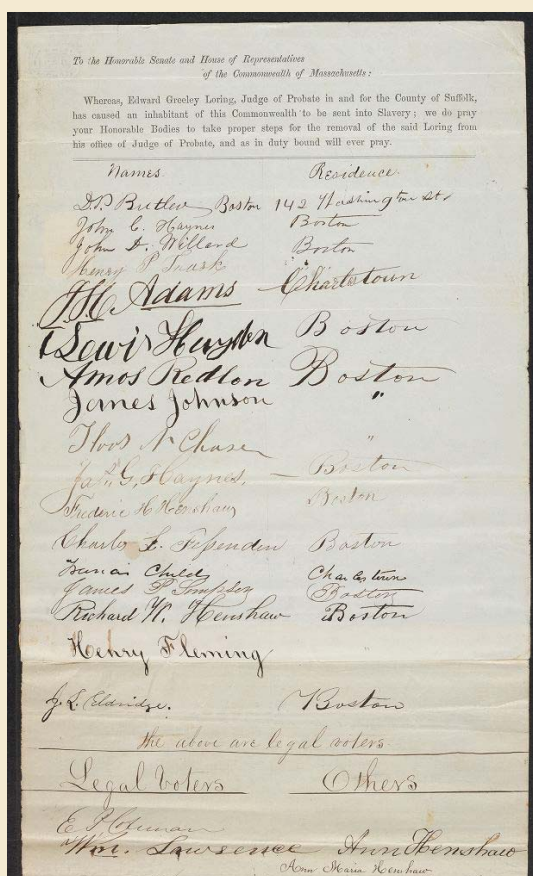 To the Honorable Senate and House of Representatives
of the Commonwealth of Massachusetts:
Whereas, Edward Greeley Loring, Judge of Probate in and for the County of Suffolk,
has caused an inhabitant of this Commonwealth to be sent into Slavery; we do pray
your Honorable Bodies to take proper steps for the removal of the said Loring from
his office of Judge of Probate, and as in duty bound will ever pray.
Names. Residence.
D.P. Butler Boston 142 Washington St.
John C. Haynes Boston
John D. Willard Boston
Henry P Trask
J.H. Adams Charlstown
Lewis Hayden Boston
Amos Redlon Boston
James Johnson "
Thos N Chase "
Jas. G. Haynes. — Boston
Frederic H Henshaw Boston
Charles L. Fessenden Boston
Francis Childs Charlestown
James P Simpson Boston
Richard W. Henshaw Boston
Henry Fleming
J. L. Eldridge. Boston
The above are legal voters.
Legal Voters Others
E P
Wm. Lawrence Ann Henshaw
Ann Maria Henshaw